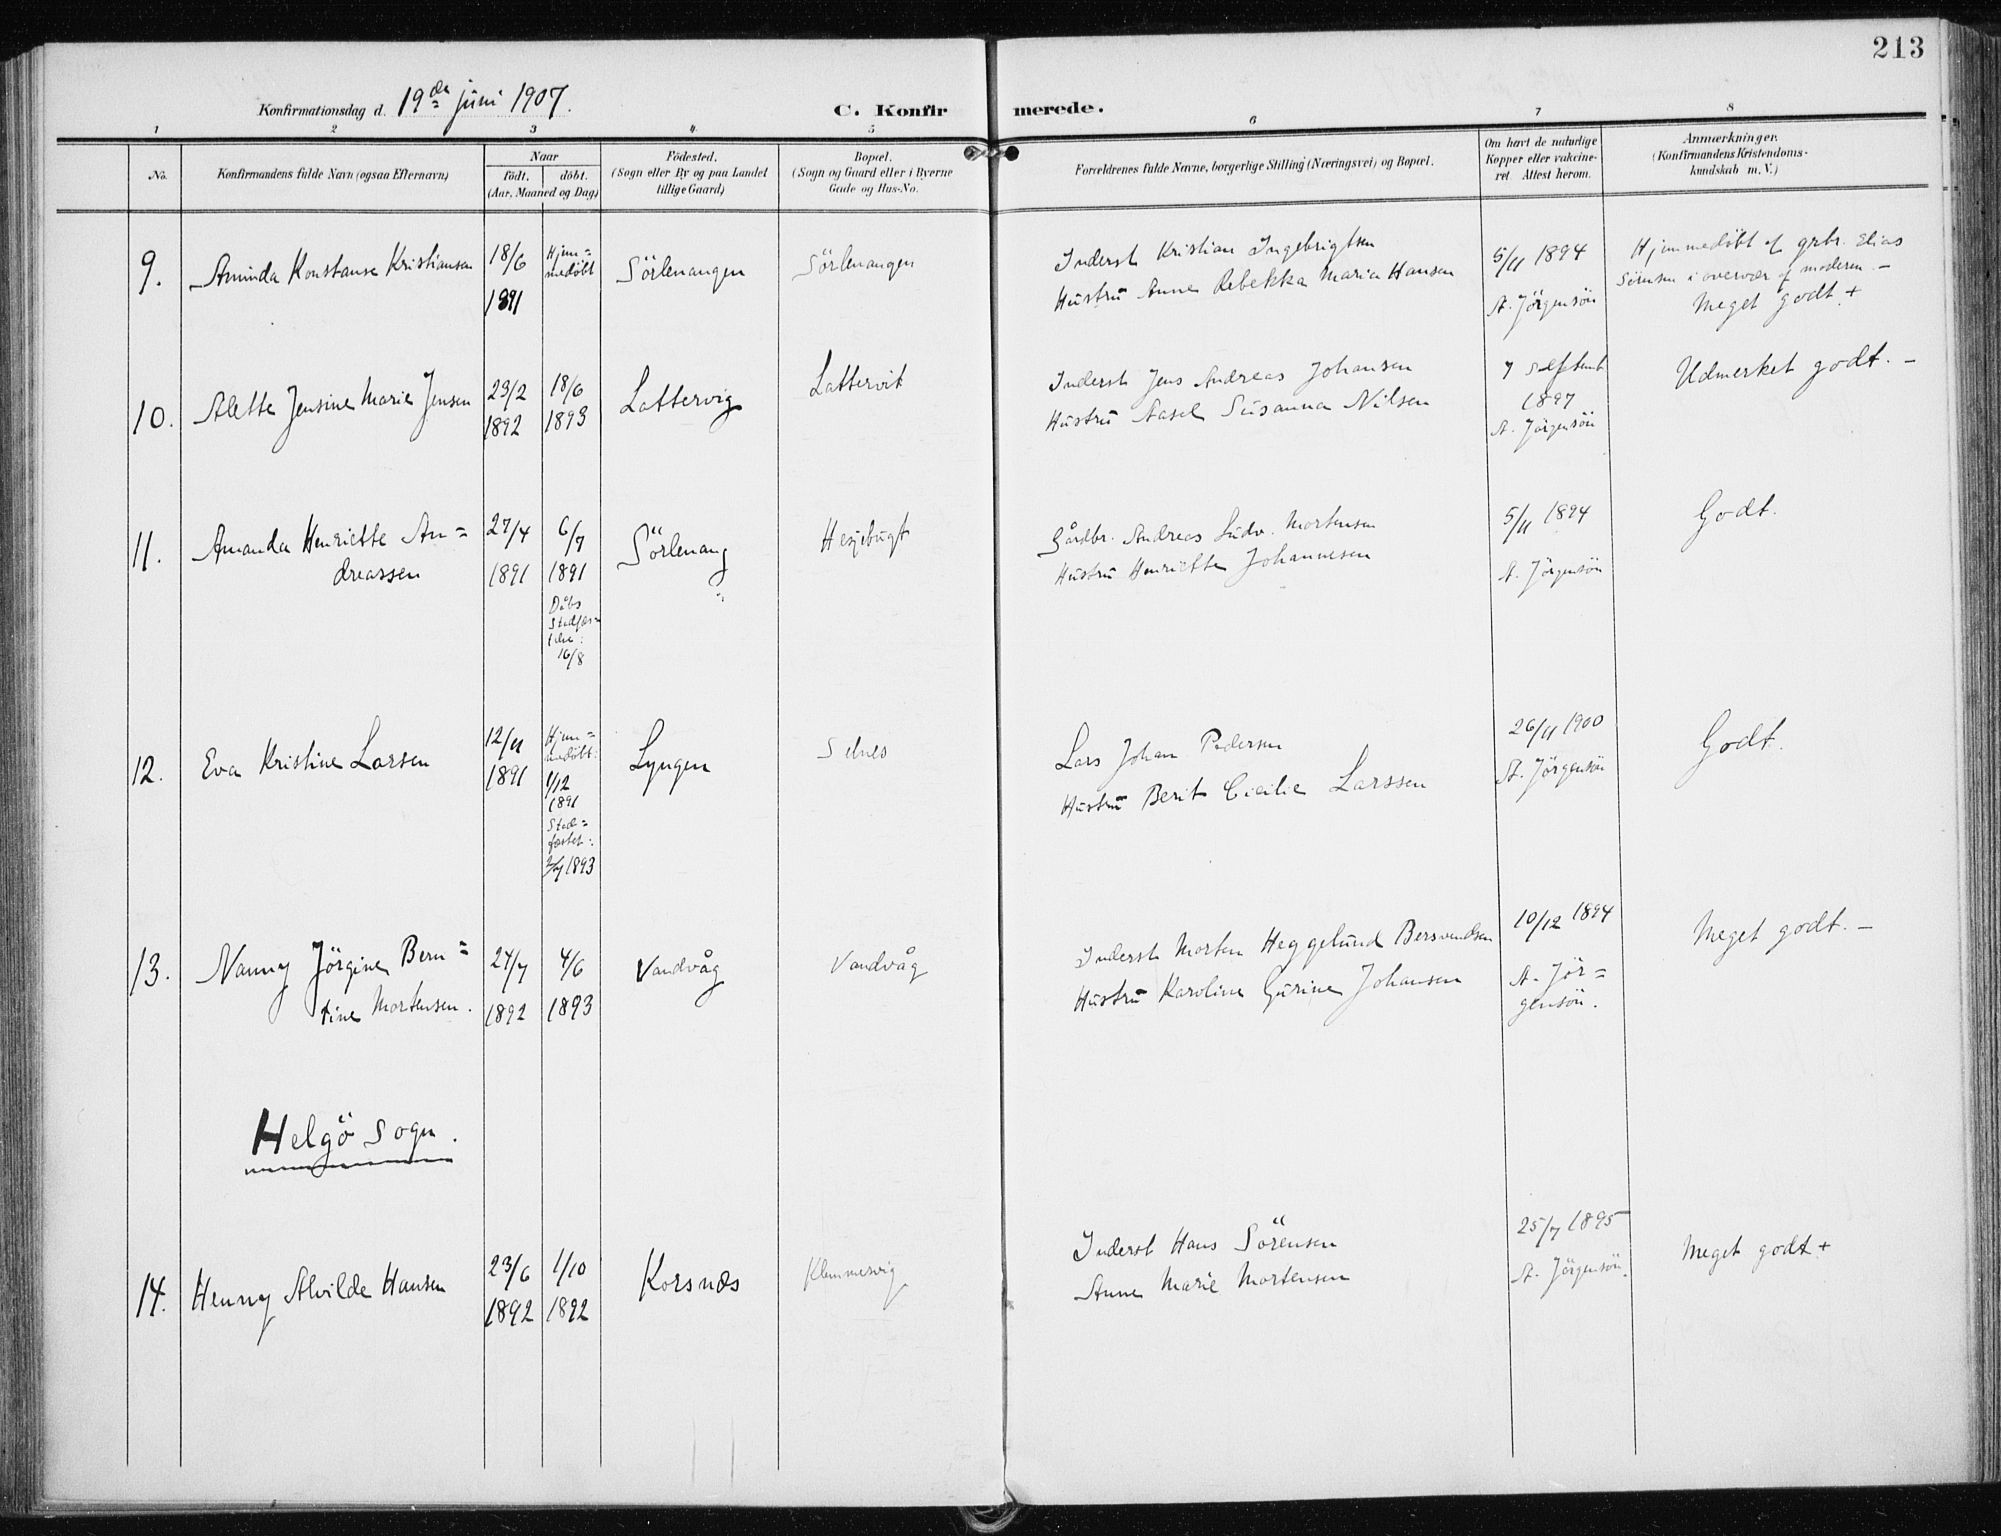 213
Konfirmationsdag d. 19de juni 1907.
C. Konfirmerede.
1 2 3 4 5 6 7 8
No.
Konfirmandens fulde Navn (ogsaa Efternavn)
Naar
født. døbt.
(Aar, Maaned og Dag)
Fødested.
(Sogn eller By og paa Landet
tillige Gaard)
Bopæl.
(Sogn og Gaard eller i Byerne
Gade og Hus-No.
Forældrenes fulde Navne, borgerlige Stilling (Næringsvei) og Bopæl.
Om havt de naturlige
Kopper eller vakcine-
ret. Attest herom.
Anmærkninger.
(Konfirmandens Kristendoms-
kundskab m. V.)
9.
Aminda Konstanse Kristiansen
18/6
1891
Hjem=
medöbt
Sörlenangen
Sörlenangen
Inderst Kristian Ingebrigtsen
Hustru Anne Rebekka Maria Hansen
5/11 1894
A. Jörgensön
Hjemmedöbt af grbr. Elias
Sörensen i overvær af moderen. –
Meget godt +
10.
Alette Jensine Marie Jensen
23/2
1892
18/6
1893
Lattervig
Lattervik
Inderst Jens Andreas Johansen
Hustru Aasel Susanna Nilsen
7 Septemb
1897
A. Jörgensön
Udmerket godt. –
11.
Amanda Henriette An=
dreassen
27/4
1891
6/7
1891
Dåbs
Stadfæs=
telse:
16/8
Sörlenang
Hesjebugt
Gårdbr. Andreas Ludv. Mortensen
Hustru Henriette Johannesen
5/11 1894
A. Jörgensön
Godt.
12.
Eva Kristine Larsen
12/11
1891
Hjem=
medöbt:
1/12
1891
Stad=
fæstet:
2/7 1893
Lyngen
Selnes
Lars Johan Pedersen
Hustru Berit Cicilie Larssen
26/11 1900
A. Jörgensön
Godt.
13.
Nanny Jörgine Bern=
tine Mortensen.
24/7
1892
4/6
1893
Vandvåg
Vandvåg
Inderst Morten Heggelund Bersvendsen
Hustru Karoline Gurine Johansen
10/12 1894
A. Jör=
gensön.
Meget godt. –
Helgö Sogn.
14.
Henny Alvilde Hansen
23/6
1892
1/10
1892
Korsnæs
Klemmervig
Inderst Hans Sörensen
Anne Marie Mortensen
25/7 1895
A. Jörgensön.
Meget godt +